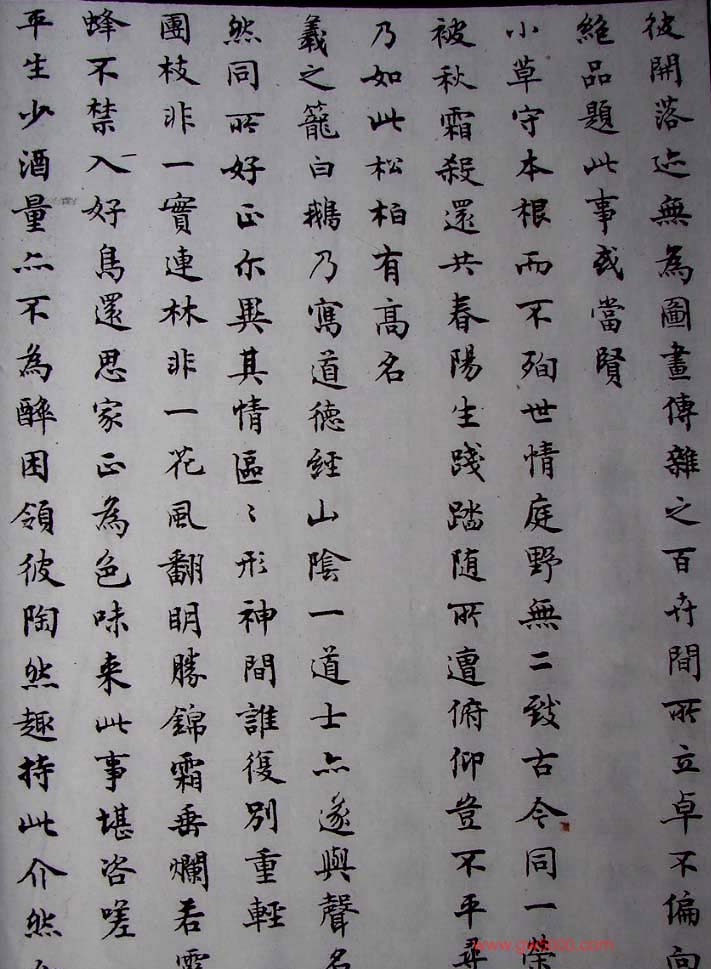 彼開落迹無為圖畫傳雜之百卉間所立卓不偏向
絕品題此事或當賢
小草守本根而不殉世情庭野無二致古今同一榮
被秋霜殺還共春陽生踐踏随所遭俯仰豈不平尋
乃如此松柏有高名
羲之籠白鵝乃寫道德經山陰一道士亦遂與聲名
然同所好正尓異其情區〻形神間誰復別重輕
團枝非一實連林非一花風翻明勝錦霜垂爛若霞
蜂不禁入好鳥還思家正為色味来此事堪咨嗟
平生少酒量亦不為醉困領彼陶然趣持此介然
www.gw5000.com